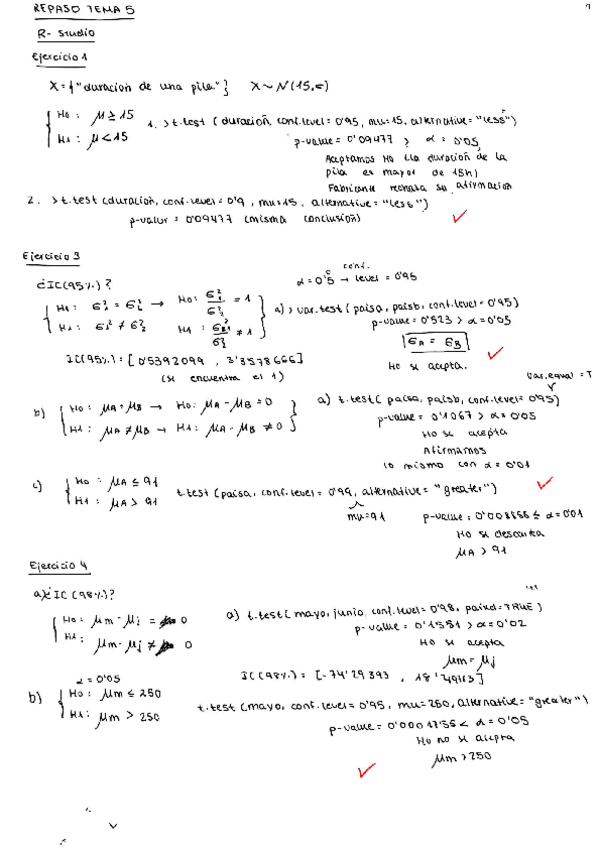 REPASO TEMA 5
R- Studio
Ejercicio 1
X = {"duración de una pila"} X ~ N(15,σ)
H0: μ ≥ 15
H1: μ < 15
1. > t.test (duración, conf.level = 0'95, mu=15, alternative = "less")
p-value = 0'09477 > α = 0'05
Aceptamos H0 (la duración de la
pila es mayor de 15h)
Fabricante rechaza su afirmación
2. > t.test (duración, conf.level = 0'9, mu=15, alternative = "less")
p-valor = 0'09477 (misma conclusión)
Ejercicio 3
¿IC(95%)?
conf.
α = 0'05 → level = 0'95
a) > var.test (paisa, paisb, conf.level = 0'95)
p-value = 0'523 > α = 0'05
σA = σB
H0 se acepta.
IC(95%) = [0'5392099, 3'3578666]
(se encuentra el 1)
b) H0: μA = μB → H0: μA - μB = 0
H1: μA ≠ μB → H1: μA - μB ≠ 0
var.equal = T
a) t.test (paisa, paisb, conf.level = 0'95)
p-value = 0'1067 > α = 0'05
H0 se acepta
Afirmamos
lo mismo con α = 0'01
c) H0: μA ≤ 91
H1: μA > 91
t.test (paisa, conf.level = 0'99, alternative = "greater")
mu=91
p-value = 0'008856 ≤ α = 0'01
H0 se descarta
μA > 91
Ejercicio 4
a) ¿IC (98%)?
H0: μm - μj = 0
H1: μm - μj ≠ 0
a) t.test (mayo, junio, conf.level = 0'98, paired = TRUE)
p-value = 0'1551 > α = 0'02
H0 se acepta
μm = μj
IC(98%) = [-74'29393, 18'79413]
α = 0'05
b) H0: μm ≤ 250
H1: μm > 250
t.test (mayo, conf.level = 0'95, mu=250, alternative = "greater")
p-value = 0'0001756 < α = 0'05
H0 no se acepta
μm > 250